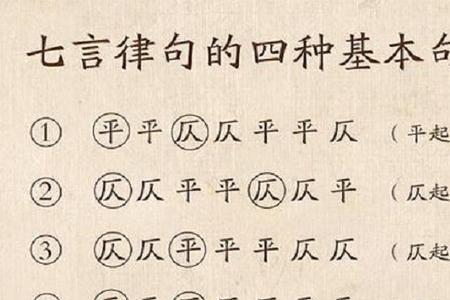 七言律句的四种基本句
① 平平仄仄平平仄 （平起
② 仄仄平平仄仄平 （仄起
③ 仄仄平平平仄仄 （仄起